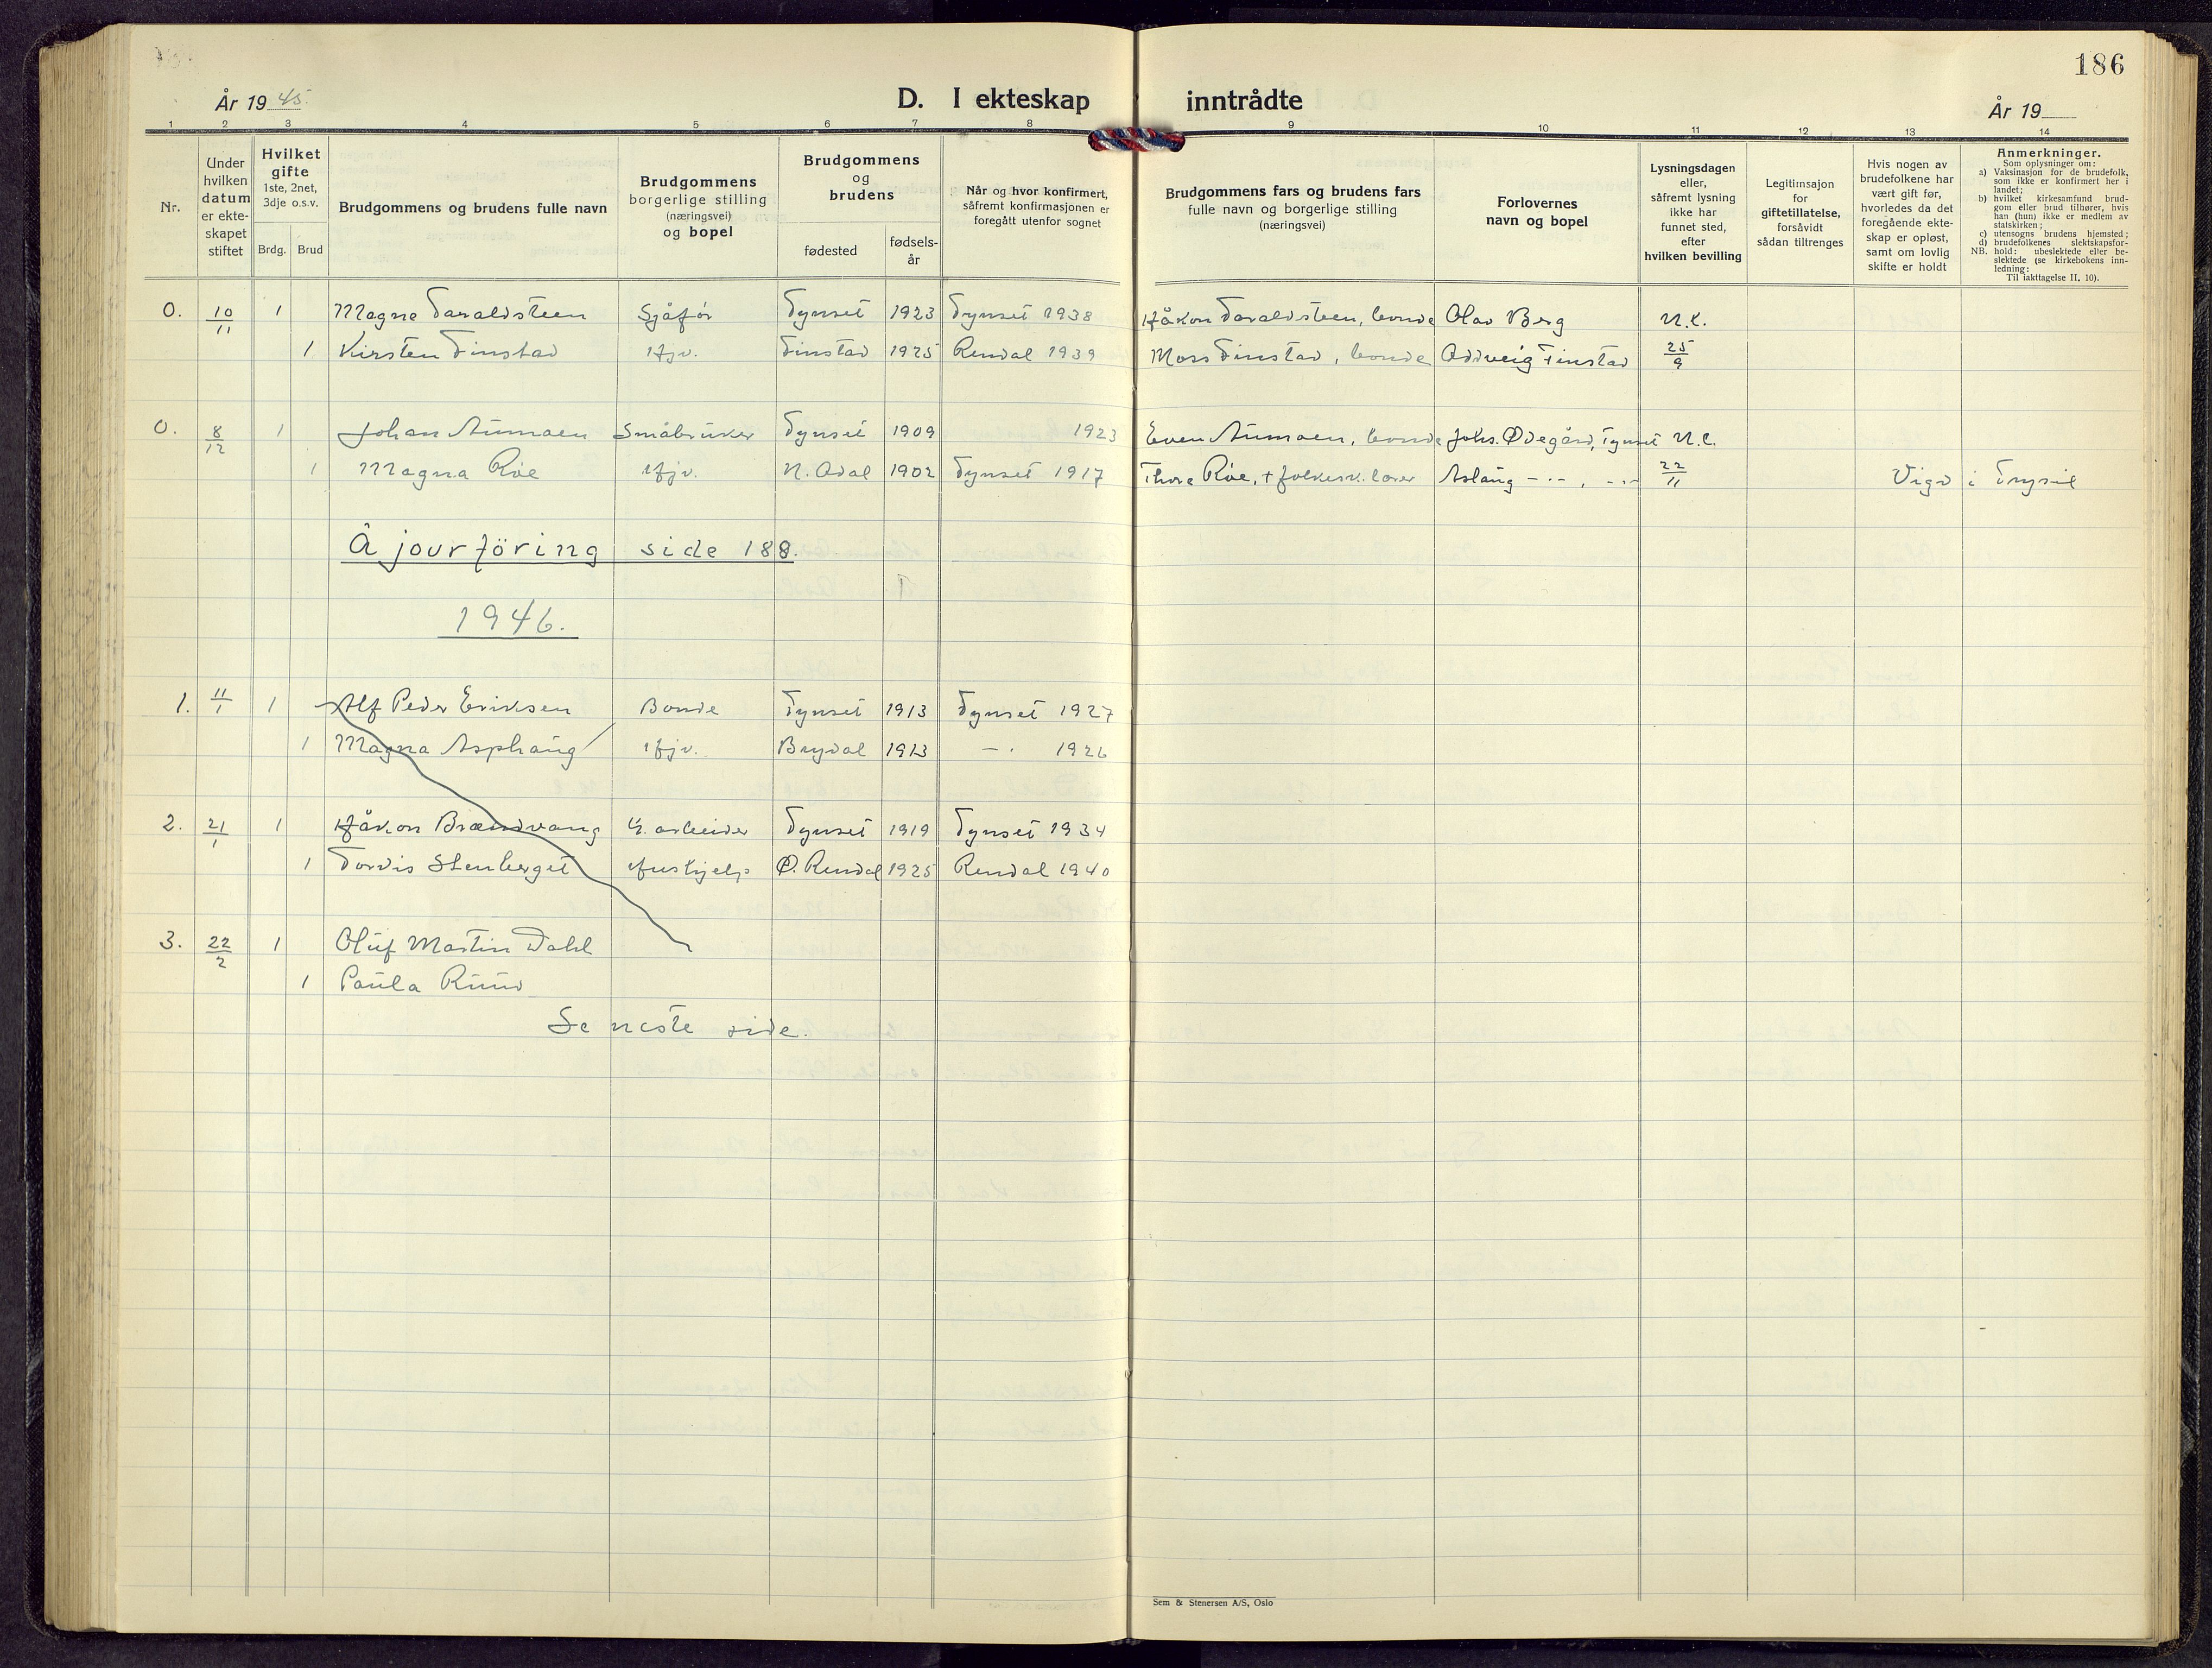 186
År 1945.
D. I ekteskap inntrådte
År 19
1 2 3 4 5 6 7 8 9 10 11 12 13 14
Nr.
Under
hvilken
datum
er ekte-
skapet
stiftet
Hvilket
gifte
1ste, 2net,
3dje o.s.v.
Brdg. Brud
Brudgommens og brudens fulle navn
Brudgommens
borgerlige stilling
(næringsvei)
og bopel
Brudgommens
og
brudens
fødested
fødsels-
år
Når og hvor konfirmert,
såfremt konfirmasjonen er
foregått utenfor sognet
Brudgommens fars og brudens fars
fulle navn og borgerlige stilling
(næringsvei)
Forlovernes
navn og bopel
Lysningsdagen
eller,
såfremt lysning
ikke har
funnet sted,
efter
hvilken bevilling
Legitimsajon
for
giftetillatelse,
forsåvidt
sådan tiltrenges
Hvis nogen av
brudefolkene har
vært gift før,
hvorledes da det
foregående ekte-
skap er opløst,
samt om lovlig
skifte er holdt
Anmerkninger.
Som oplysninger om:
a) Vaksinasjon for de brudefolk,
som ikke er konfirmert her i
landet;
b) hvilket kirkesamfund brud-
gom eller brud tilhører, hvis
han (hun) ikke er medlem av
statskirken;
c) utensogns brudens hjemsted;
d) brudefolkenes slektskapsfor-
NB. hold: ubeslektede eller be-
slektede (se kirkebokens inn-
ledning:
Til iakttagelse II, 10).
0. 10/11 1 Magne Taraldsteen Sjåfør Tynset 1923 Tynset 1938 Håkon Taraldsteen, bonde Olav Berg N.k.
1 Kirsten Finstad Hjv. Finstad 1925 Rendal 1939 Moss Finstad, bonde Oddveig Finstad 25/9
0. 8/12 1 Johan Aumoen Småbruker Tynset 1909 1923 Even Aumoen, bonde Johs. Ødegård, Tynset N.k.
1 Magna Roe Hjv. N. Odal 1902 Tynset 1917 Thore Roe, + folkesk. lærer Aslaug -"-, -"- 22/11 Vigd i Trysil
Å jourföring side 188.
1946.
1. 11/1 1 Alf Peder Eriksen Bonde Tynset 1913 Tynset 1927
1 Magna Asphaug Hjv. Brydal 1913 -" 1926
2. 21/1 1 Håkon Brændvang Gr. arbeider Tynset 1919 Tynset 1934
1 Tordis Stenberget Hushjelp Ø. Rendal 1925 Rendal 1940
3. 22/2 1 Oluf Martin Dahl
1 Paula Ruud
Se neste side.
Sem & Stenersen A/S, Oslo